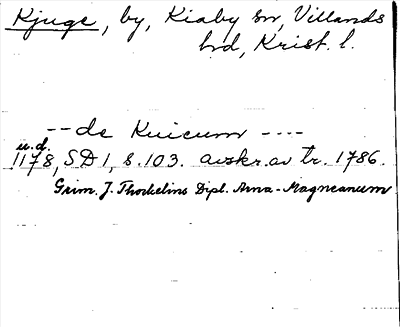 Kjuge, by, Kiaby sn, Villands
hd, Krist. l.
-- de Kuicum ----
u.d.
1178, SD 1, s. 103. avskr. av tr. 1786.
Grim. J. Thorkelins Dipl. Arna-Magneanum